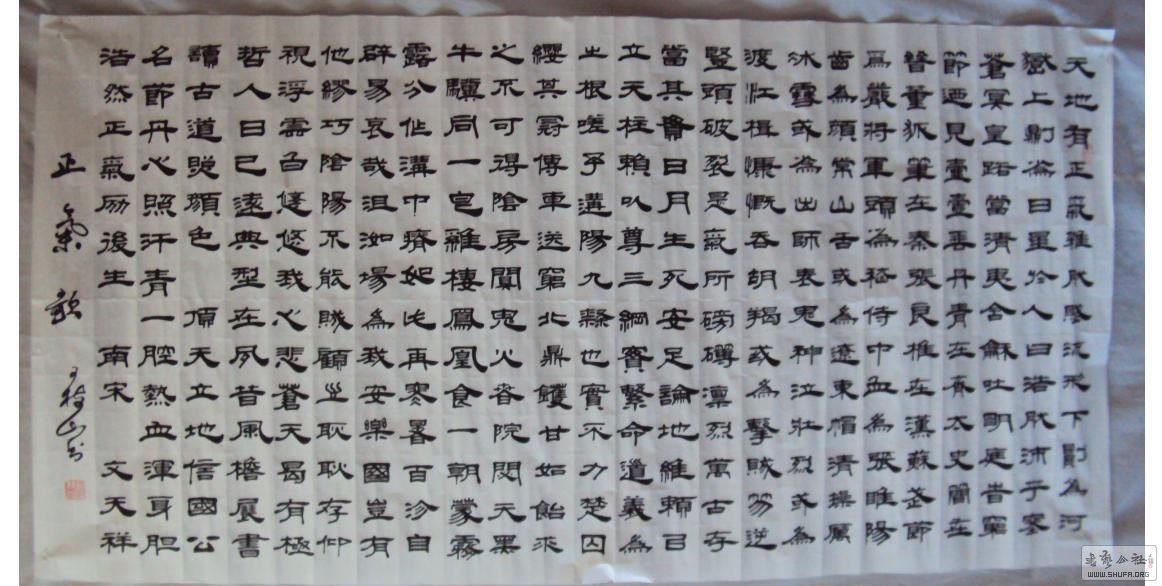 天地有正氣雜然賦流形下則為河
嶽上則為日星於人曰浩然沛乎塞
蒼冥皇路當清夷含龢吐明庭時窮
節迺見壹壹垂丹青在齊太史簡在
晉董狐筆在秦張良椎在漢蘇武節
為嚴將軍頭為嵇侍中血為張睢陽
齒為顏常山舌或為遼東帽清操厲
冰雪或為出師表鬼神泣壯烈或為
渡江楫慷慨吞胡羯或為擊賊笏逆
豎頭破裂是氣所磅礴凜烈萬古存
當其貫日月生死安足論地維賴以
立天柱賴以尊三綱實繫命道義為
之根嗟予遘陽九隸也實不力楚囚
纓其冠傳車送窮北鼎鑊甘如飴求
之不可得陰房闃鬼火春院閟天黑
牛驥同一皂雞棲鳳凰食一朝蒙霧
露分作溝中瘠如此再寒暑百沴自
辟易哀哉沮洳場為我安樂國豈有
他繆巧陰陽不能賊顧此耿耿存仰
視浮雲白悠悠我心悲蒼天曷有極
哲人日已遠典型在夙昔風檐展書
讀古道照顏色 頂天立地信國公
名節丹心照汗青一腔熱血渾身膽
浩然正氣勵後生 南宋 文天祥
正氣歌
WWW.SHUFA.ORG